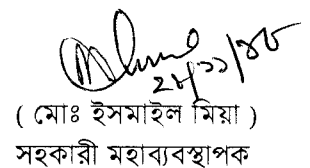 ২৮/১১/১৮
( মোঃ ইসমাইল মিয়া )
সহকারী মহাব্যবস্থাপক